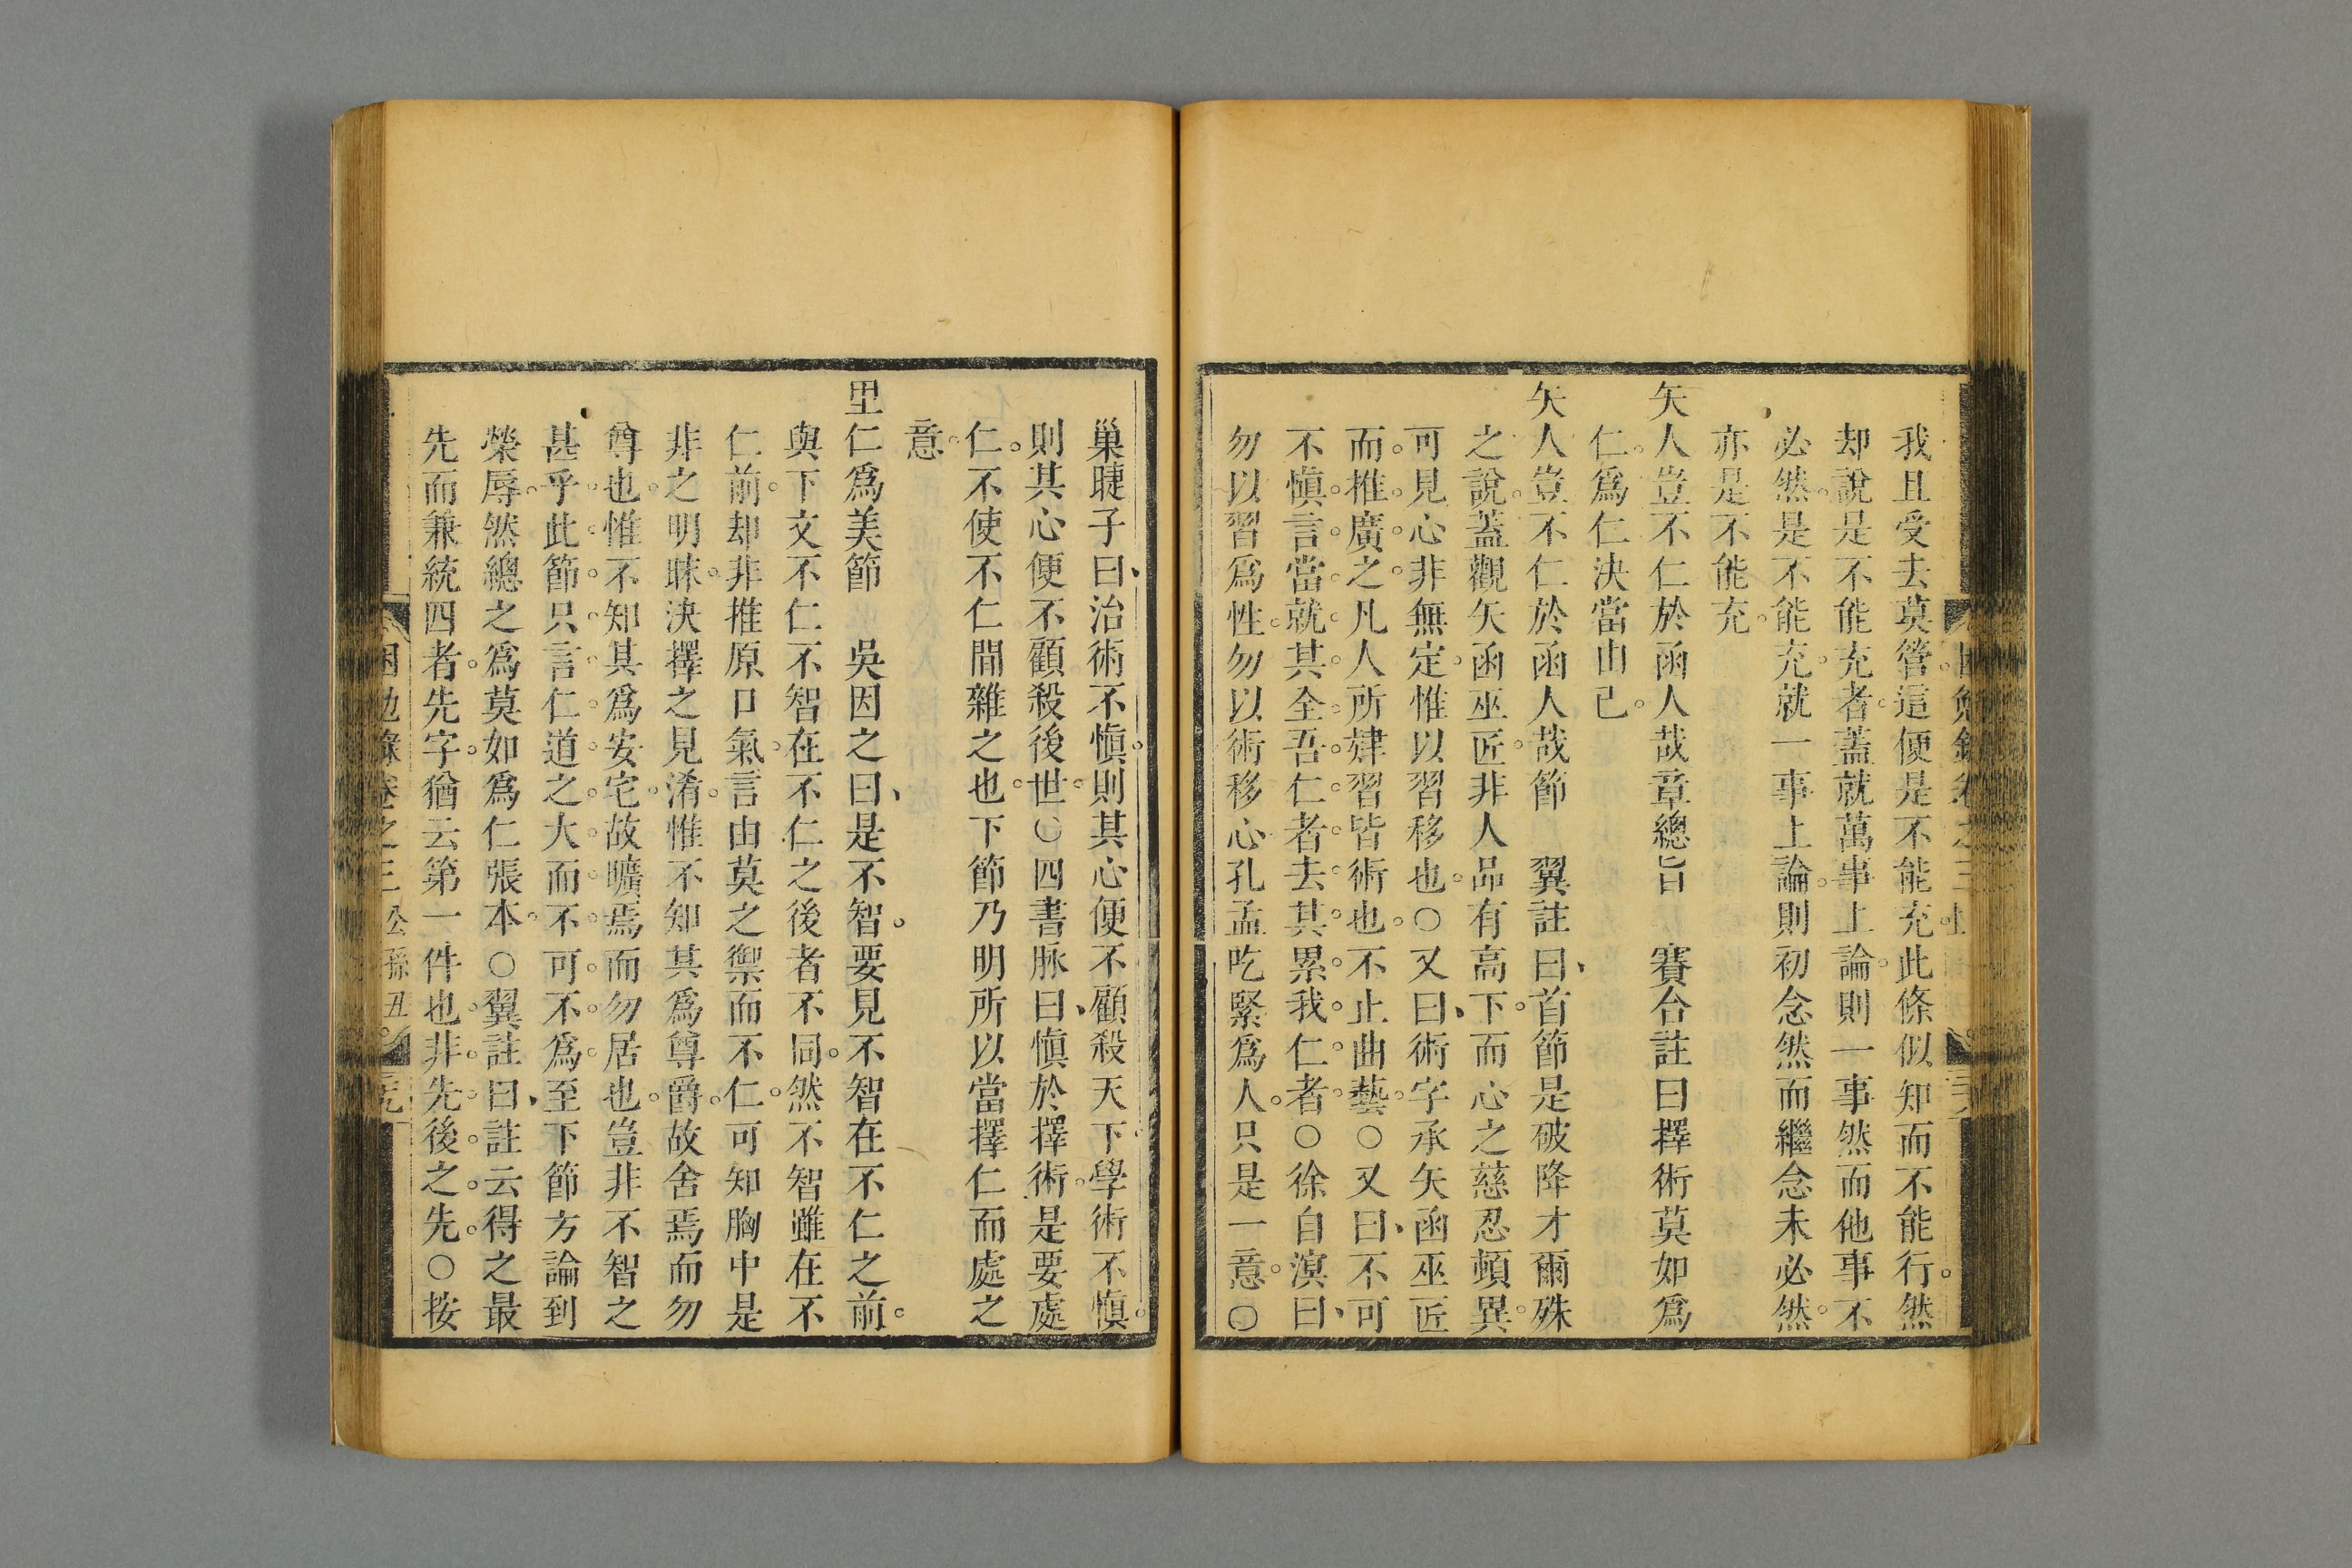 我且受去莫管這便是不能充此條似知而不能行。然
却說是不能充者。蓋就萬事上論。則一事然而他事不
必然。是不能充。就一事上論。則初念然而繼念未必然。
亦是不能充。
矢人豈不仁於函人哉章總旨　賽合註曰擇術莫如為
仁。為仁決當由己。
矢人豈不仁於函人哉節　翼註曰、首節是破降才爾殊
之說。蓋觀矢函巫匠。非人品有高下。而心之慈忍頓異。
可見心非無定。惟以習移也。○又曰、術字承矢函巫匠
而。推。廣。之。凡人所肄習皆術也。不止曲藝。○又曰、不可
不慎。言。當。就。其。全。吾。仁。者。去。其。累。我。仁。者。○徐自溟曰、
勿以習為性。勿以術移心孔孟吃緊為人。只是一意。○
巢睫子曰、治術不慎。則其心便不顧殺天下。學術不慎。
則其心便不顧殺後世。○四書脉曰、慎於擇術。是要處
仁。不使不仁間雜之也。下節乃明所以當擇仁而處之
意。
里仁為美節　吳因之曰、是不智。要見不智在不仁之前。
與下文不仁不智在不仁之後者不同。然不智雖在不
仁前。却非推原口氣。言由莫之禦而不仁。可知胸中是
非之明昧。決擇之見淆。惟不知其為尊爵。故舍焉而勿
尊也。惟不知其為安宅。故曠焉而勿居也。豈非不智之
甚乎。此節只言仁道之大而不可不為。至下節方論到
榮辱。然總之為莫如為仁張本。○翼註曰、註云得之最
先而兼統四者。先字。猶云第一件也。非。先。後。之。先。○按
困勉錄卷之三 公孫丑